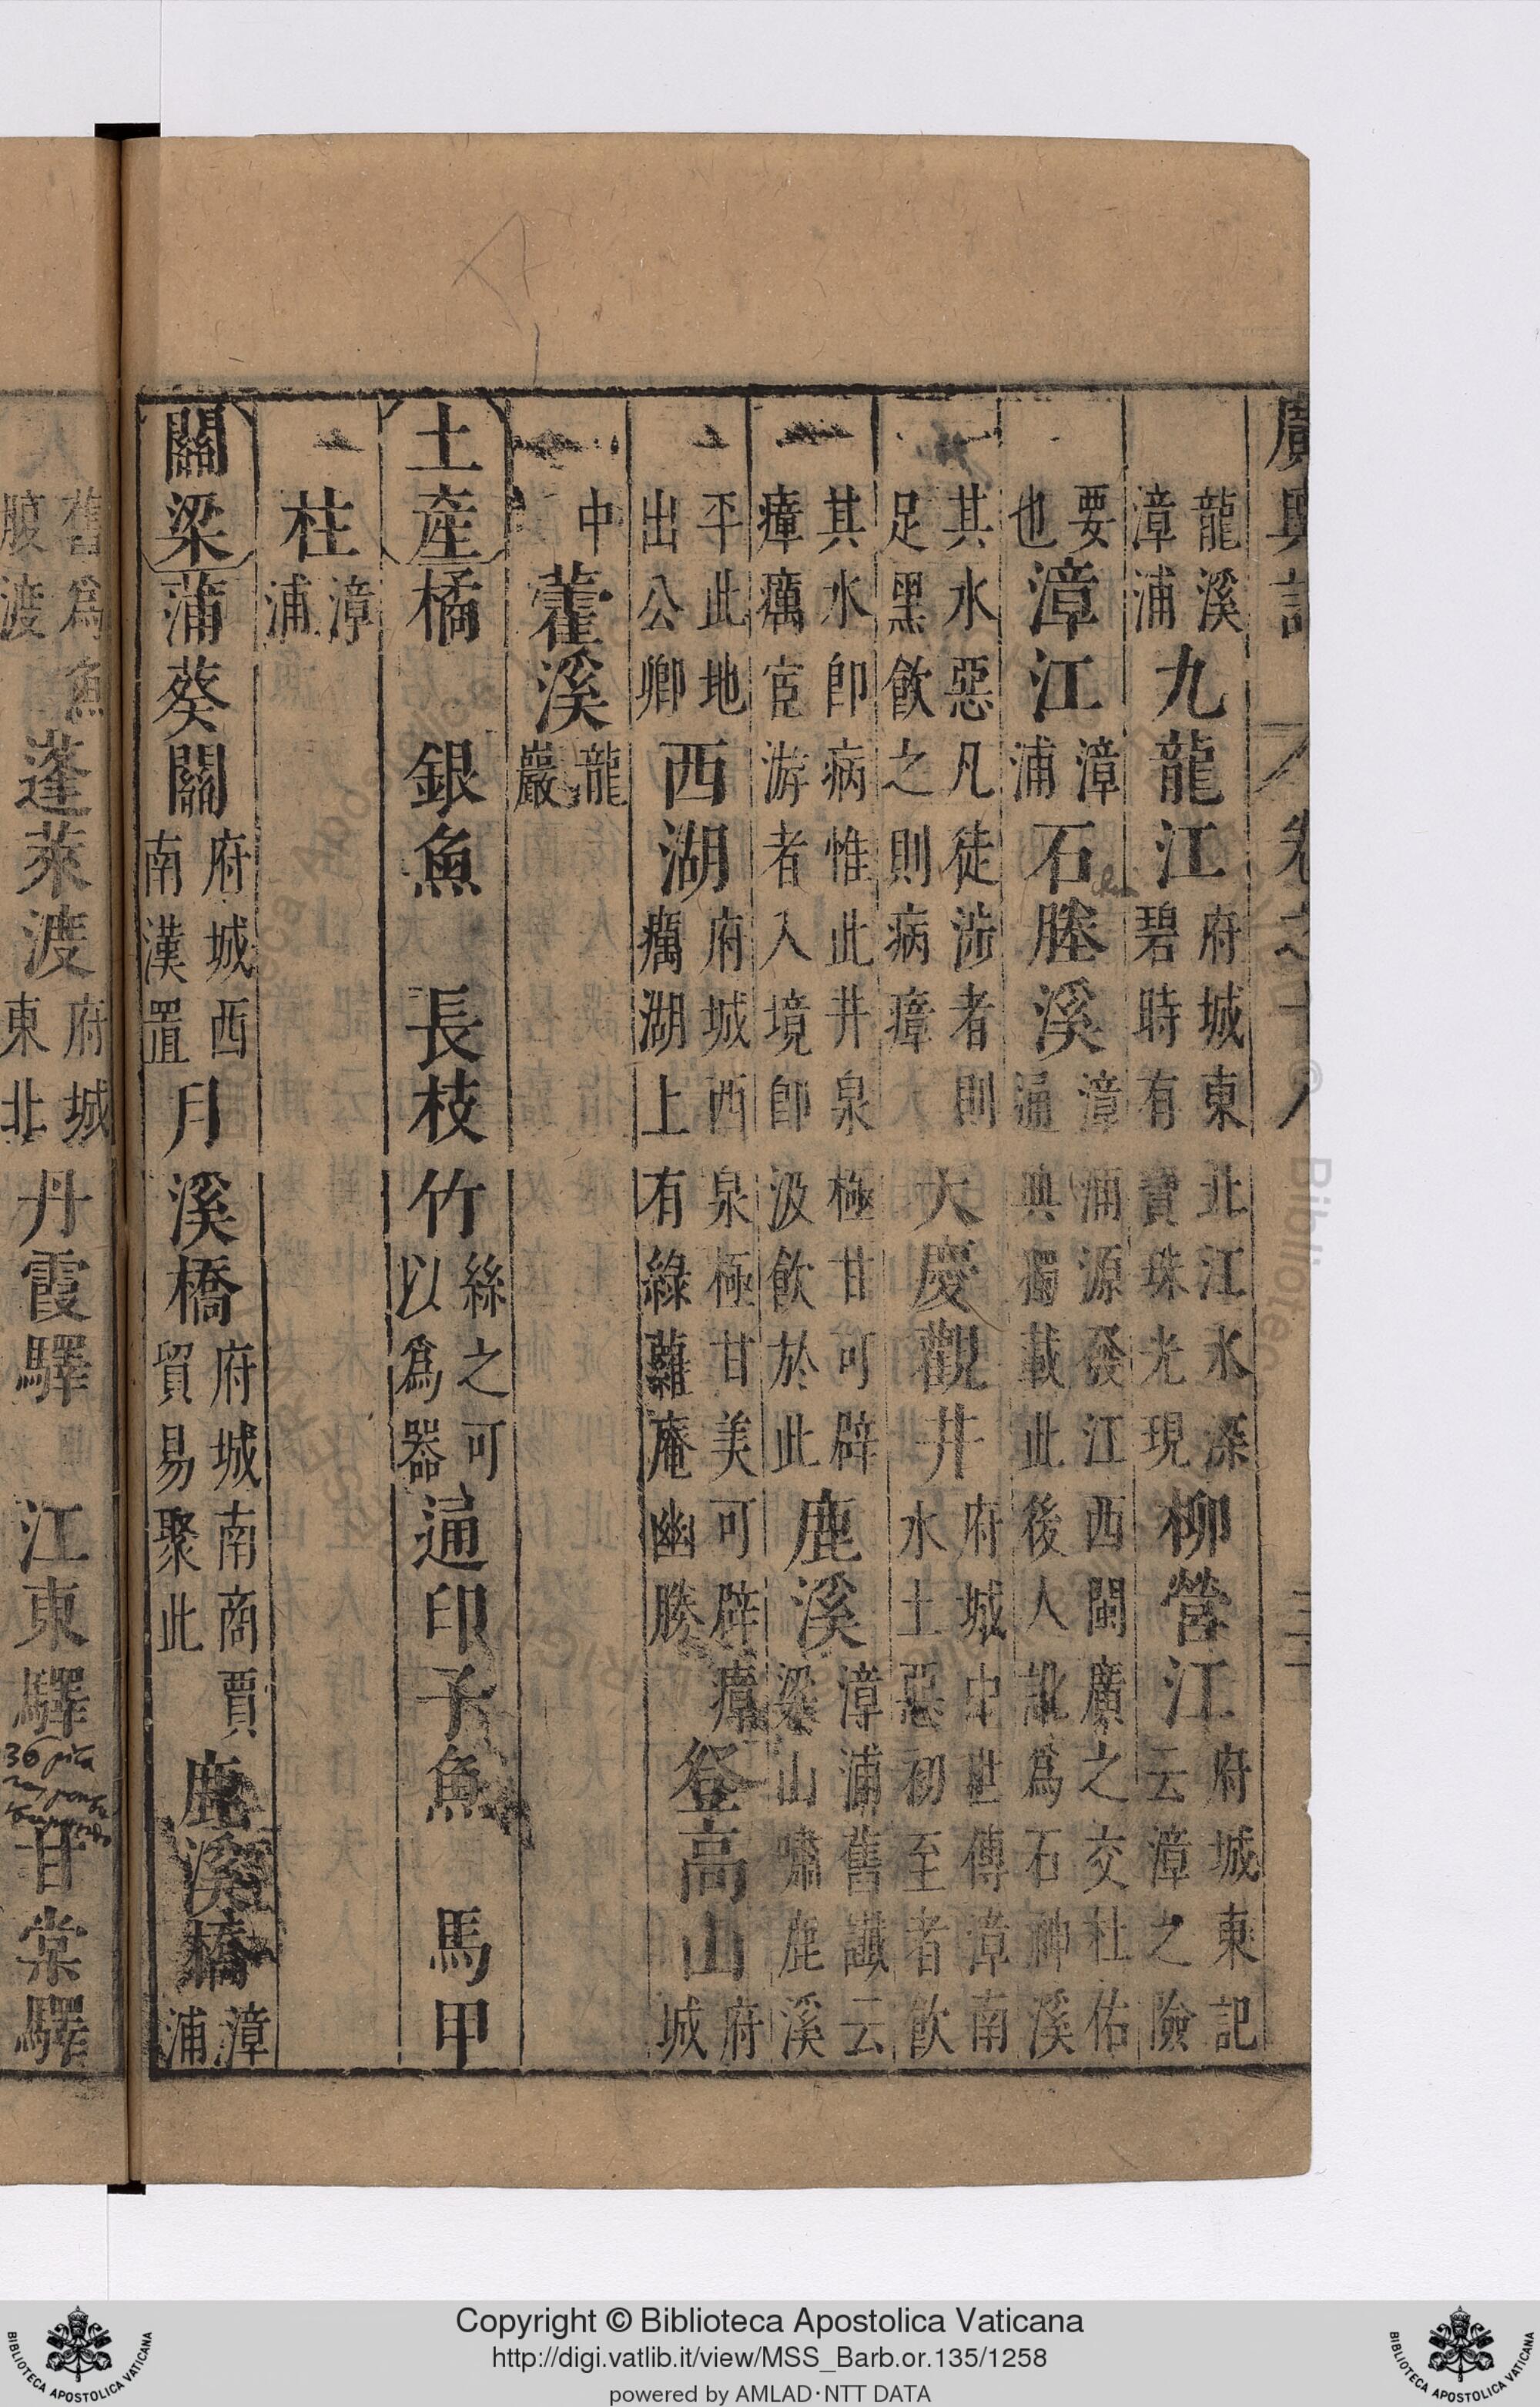 廣輿記 卷之十八
龍溪漳浦九龍江府城東北江水深碧時有寶珠光現柳營江府城東記云漳之險
要也漳江漳浦石塍溪漳浦源發江西閩廣之交杜佑通典獨載此後人訛爲石神溪
其水惡凡徒涉者則足黑飲之則病瘴大慶觀井府城中世傳漳南水土惡初至者飲
其水即病惟此井泉極甘可辟瘴癘宦游者入境即汲飲於此鹿溪漳浦舊讖云梁山嘯鹿溪
平此地出公卿西湖府城西泉極甘美可辟瘴癘湖上有綠蘿庵幽勝登高山府城
中藿溪龍巖
土產橘 銀魚 長枝竹絲之可以爲器通印子魚 馬甲
柱漳浦
關梁蒲葵關府城西南漢置月溪橋府城南商賈貿易聚此鹿溪橋漳浦
舊爲魚腹渡蓬萊渡府城東北丹霞驛 江東驛 甘棠驛
36
Copyright © Biblioteca Apostolica Vaticana
http://digi.vatlib.it/view/MSS_Barb.or.135/1258
powered by AMLAD·NTT DATA
BIBLIOTECA APOSTOLICA VATICANA
BIBLIOTECA APOSTOLICA VATICANA